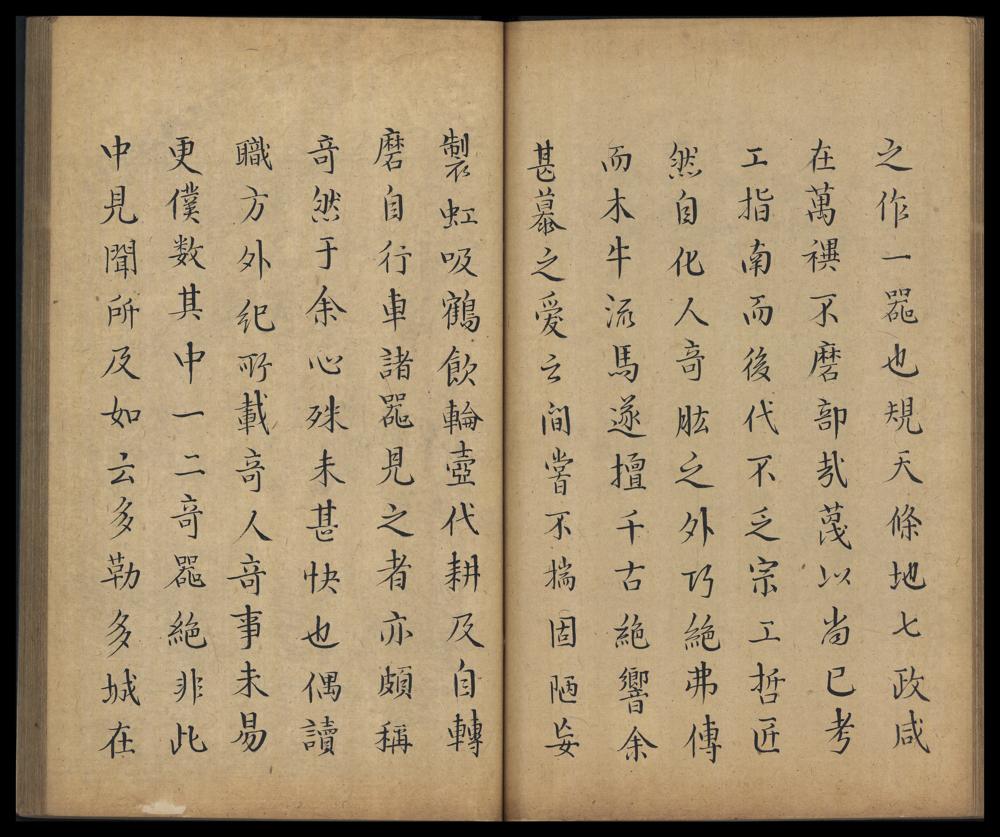 之作一噐也規天條地七政咸
在萬禩不磨部㢤蔑以尚已考
工指南而後代不乏宗工哲匠
然自化人竒肱之外巧絶弗傳
而木牛流馬遂擅千古絶響余
甚慕之愛之間嘗不揣固陋妄
製虹吸鶴飲輪壺代耕及自轉
磨自行車諸噐見之者亦頗稱
竒然于余心殊未甚快也偶讀
職方外紀所載竒人竒事未易
更僕数其中一二竒噐絶非此
中見聞所及如云多勒多城在